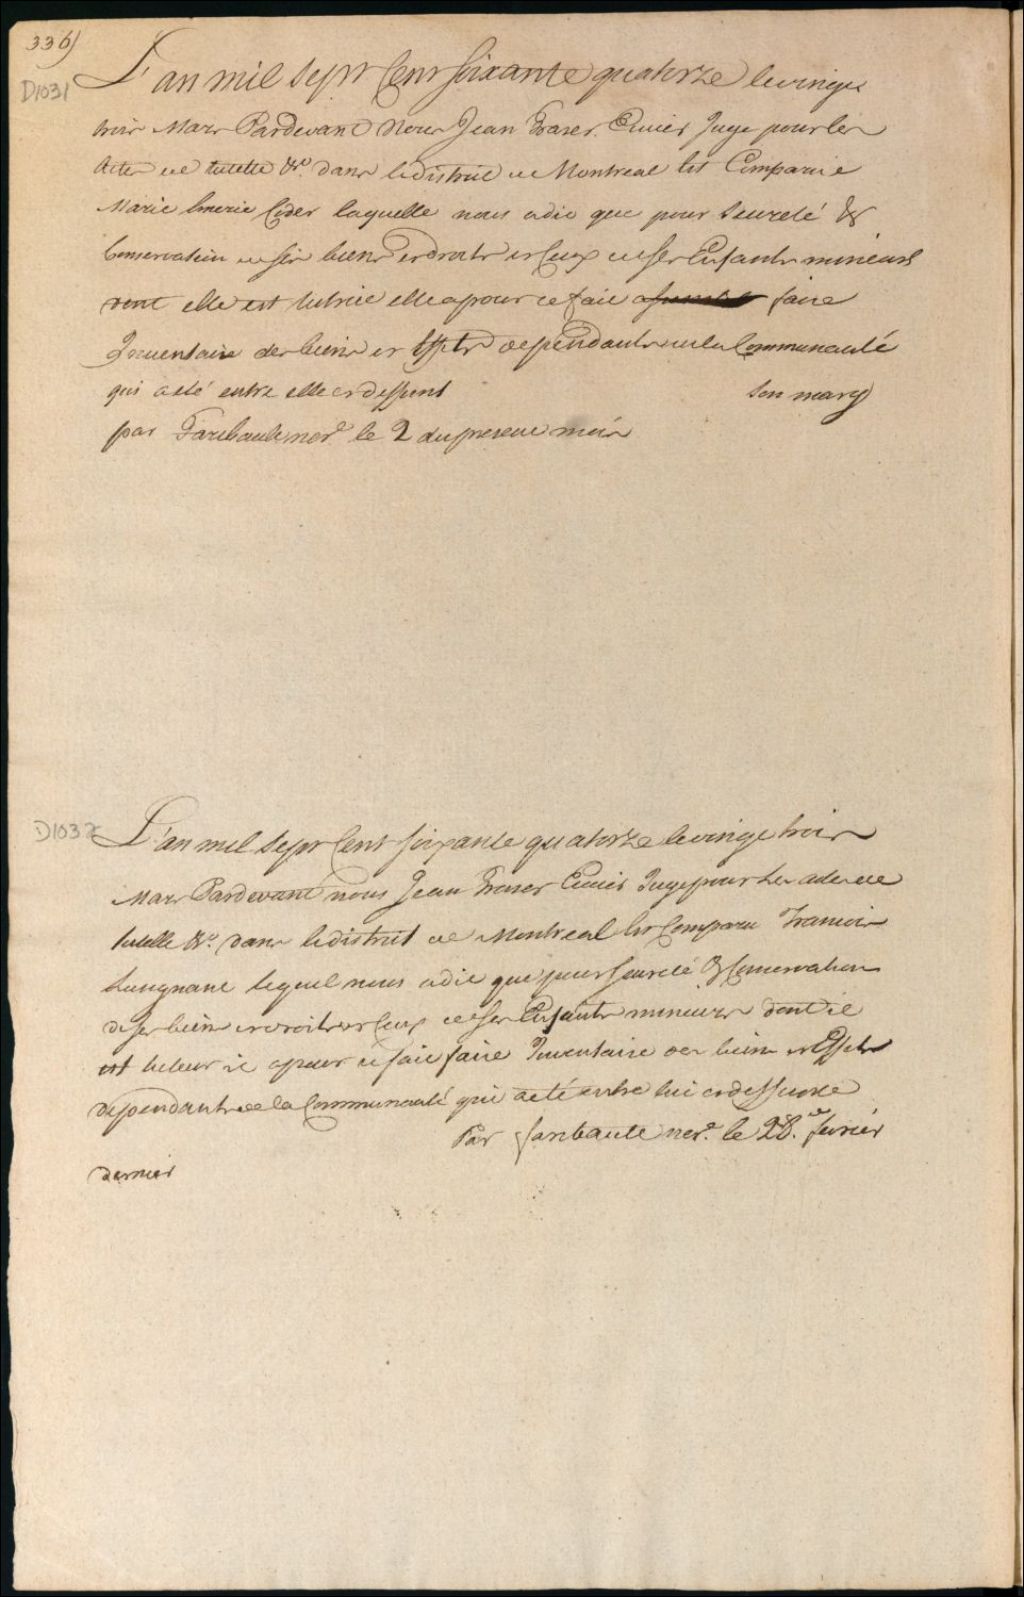 336)
D1031
L'an mil sept Cent soixante quatorze le vingt
trois Mars Pardevant Nous Jean Fraser Ecuier Juge pour les
Actes de tutelle &c. dans le district de Montreal Est Comparüe
Marie laquelle nous a dit que pour Seureté &
Conservation de ses biens et droits et Ceux de ses Enfants mineurs
dont elle est tutrice elle a pour ce fait faire
Inventaire des biens et Effets dependants de la Communauté
qui a eté entre elle et deffunt son mary
par Faribault not.e le 2 du present mois
D1032
L'an mil sept Cent soixante quatorze le vingt trois
Mars Pardevant nous Jean Fraser Ecuier Juge pour les actes de
tutelle &c. dans le district de Montreal Est Comparu Francois
Lusignant lequel nous a dit que pour seureté & Conservation
de ses biens et droits et Ceux de ses Enfants mineurs dont il
est tuteur il a pour ce fait faire Inventaire des biens et Effets
dependants de la Communauté qui a eté entre lui et deffunte
Par faribault not.e le 28.e fevrier
dernier